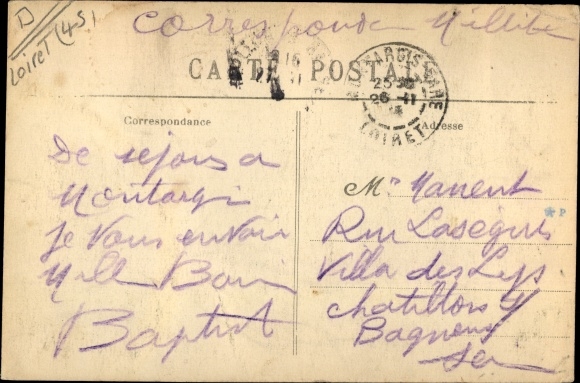 D
Loiret (45)
Correspondance Millitaire
CARTE POSTALE
MONTARGIS GARE
23
26 - 11
LOIRET
Correspondance
Adresse
De sejour a
Montargi
je vous envoie
Mille
Baptist
Mr Manent
Rue Lasègue
Villa des Lys
Chatillons s/
Bagneux